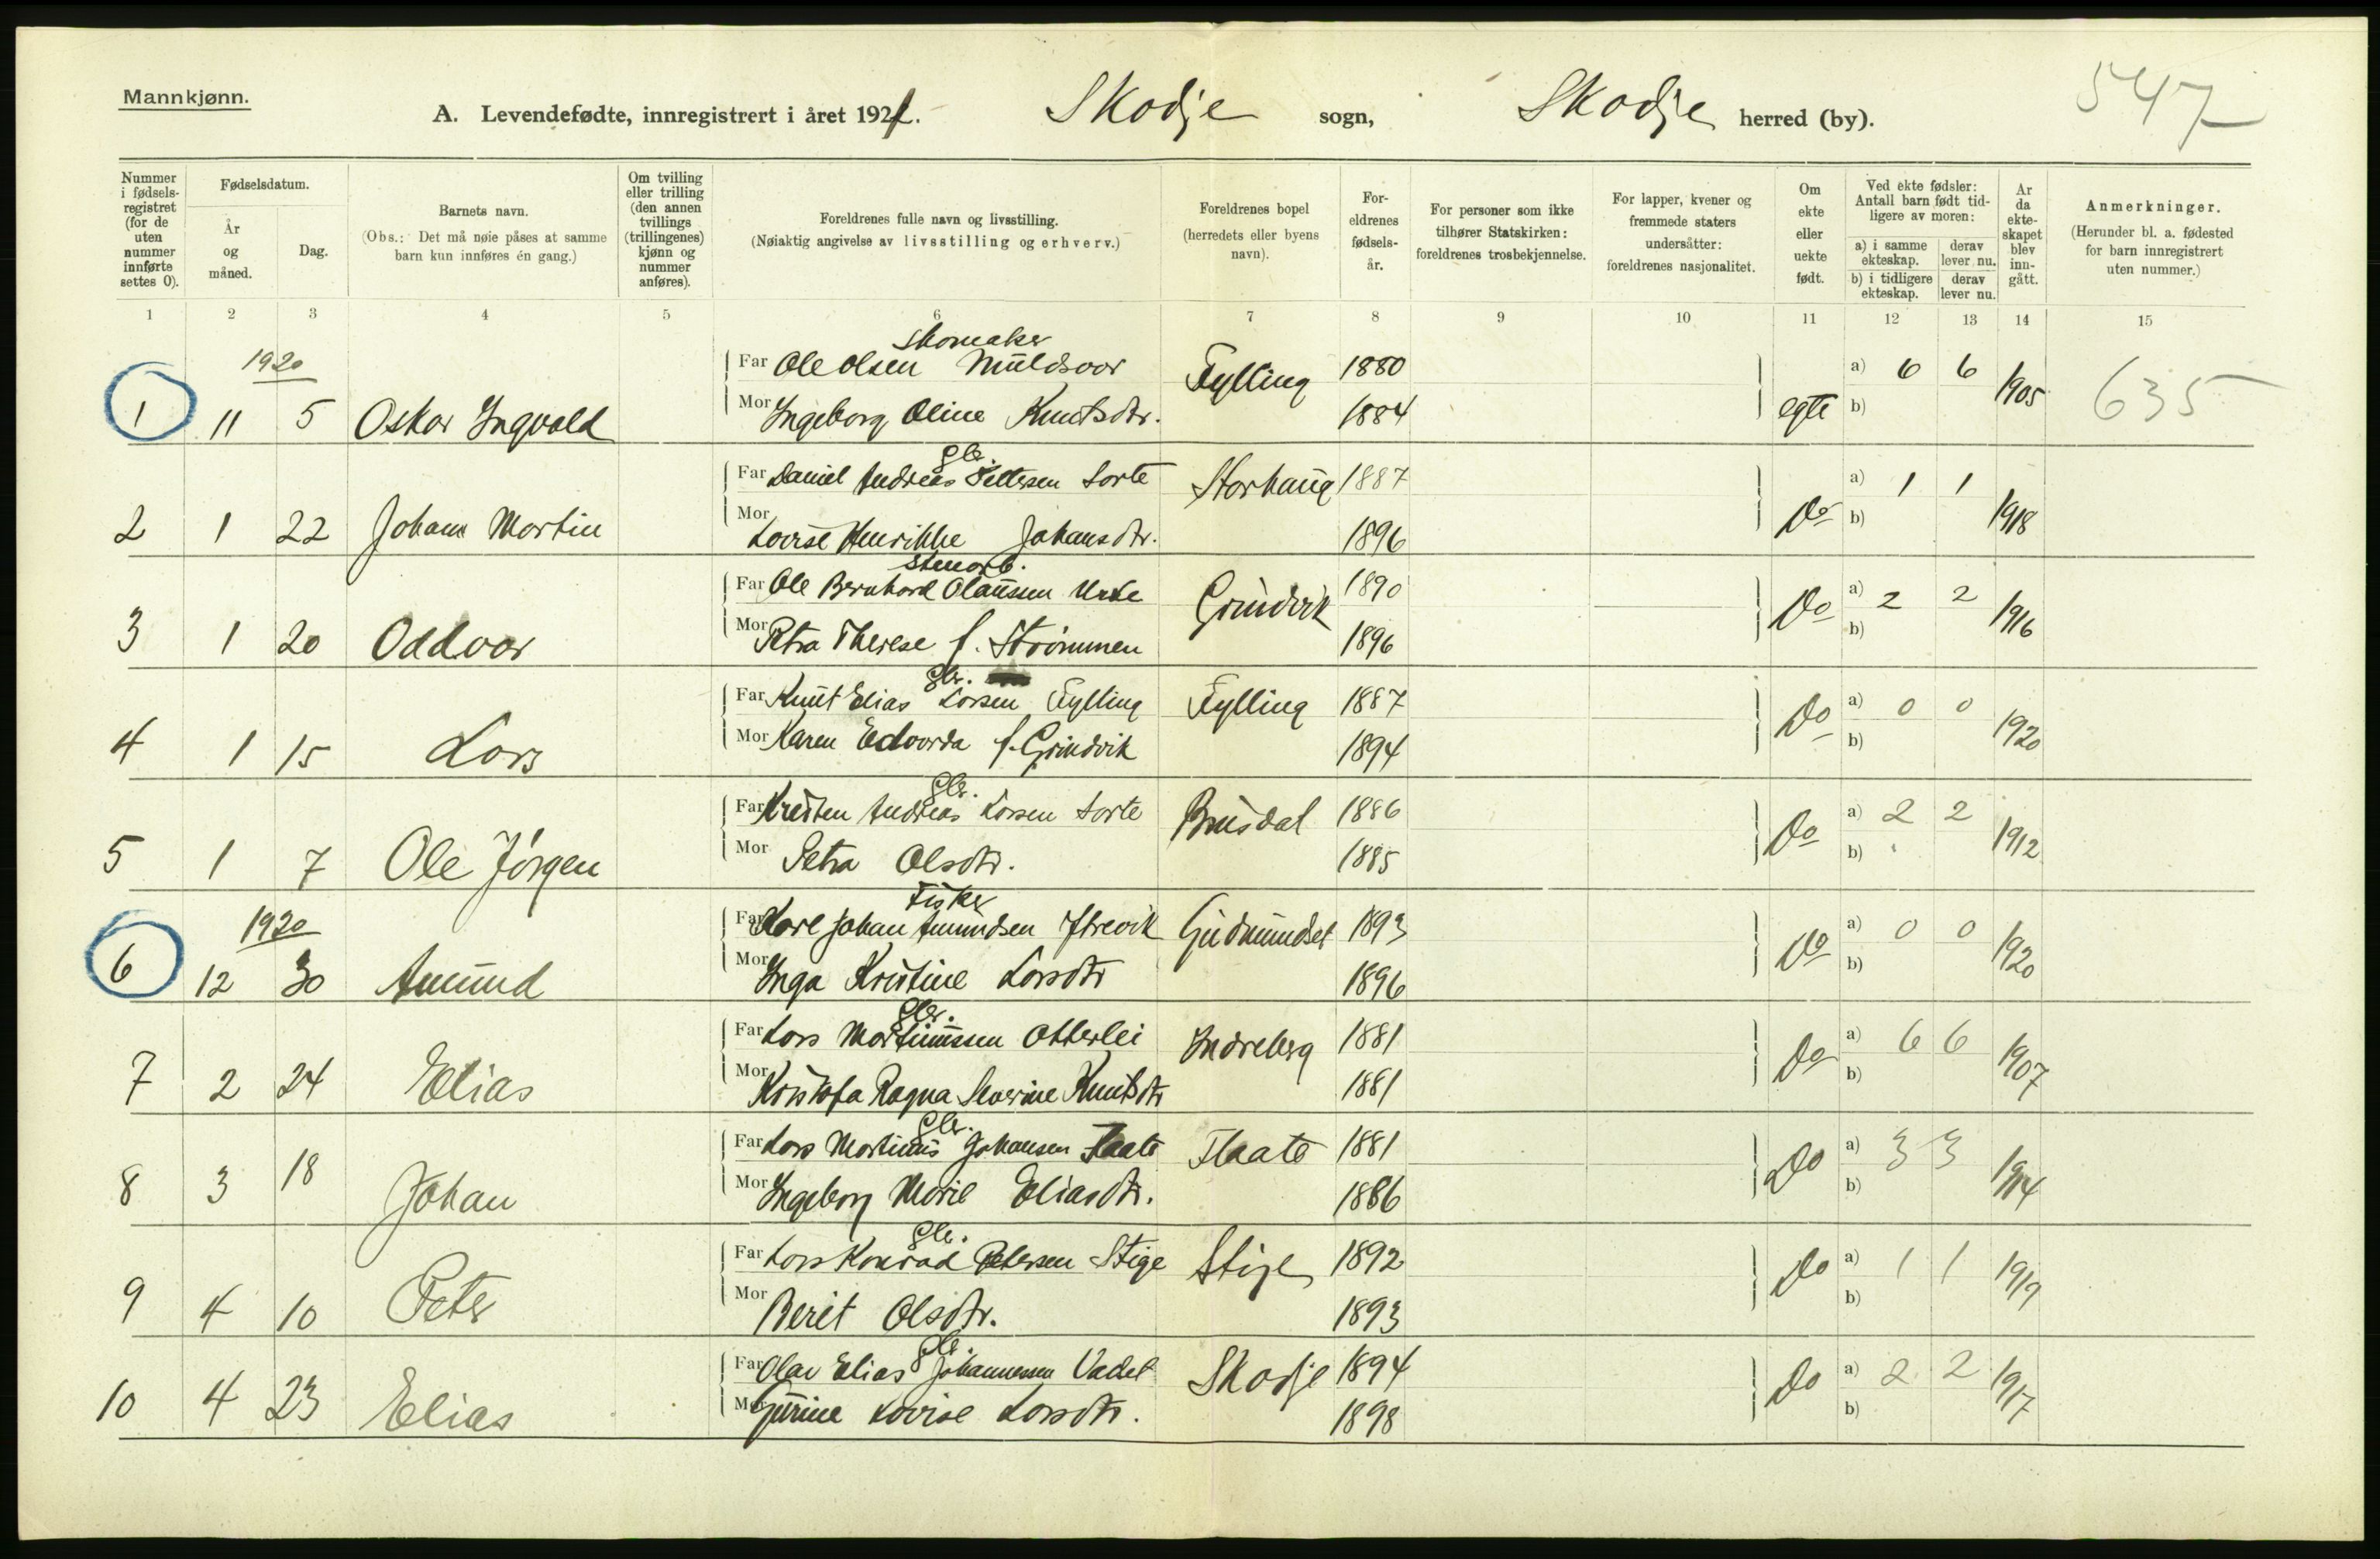 Mannkjønn.
A. Levendefødte, innregistrert i året 1921. Skodje sogn, Skodje herred (by). 547
Nummer i fødsels-registret (for de uten nummer innførte settes 0).
Fødselsdatum.
År og måned.
Dag.
Barnets navn.
(Obs.: Det må nøie påses at samme barn kun innføres én gang.)
Om tvilling eller trilling (den annen tvillings (trillingenes) kjønn og nummer anføres).
Foreldrenes fulle navn og livsstilling.
(Nøiaktig angivelse av livsstilling og erhverv.)
Foreldrenes bopel (herredets eller byens navn).
For-eldrenes fødsels-år.
For personer som ikke tilhører Statskirken: foreldrenes trosbekjennelse.
For lapper, kvener og fremmede staters undersåtter: foreldrenes nasjonalitet.
Om ekte eller uekte født.
Ved ekte fødsler: Antall barn født tid-ligere av moren:
a) i samme ekteskap. derav lever nu.
b) i tidligere ekteskap. derav lever nu.
År da ekte-skapet blev inn-gått.
Anmerkninger.
(Herunder bl. a. fødested for barn innregistrert uten nummer.)
1 2 3 4 5 6 7 8 9 10 11 12 13 14 15
Skomaker
1920 Far Ole Olsen Muldsvor Fylling 1880 a) 6 6 1905 635
1 11 5 Oskar Ingvald Mor Ingeborg Oline Knutsdtr. 1884 egte b)
gbr.
Far Daniel Andreas Pettersen Sorte Storhaug 1887 a) 1 1 1918
2 1 22 Johan Martin Mor Lovise Henrikke Johansdtr. 1896 Do b)
Stenarb.
Far Ole Bernhard Olaussen Urke Grindvik 1890 a) 2 2 1916
3 1 20 Oddvar Mor Petra Therese f. Strømmen 1896 Do b)
gbr.
Far Knut Elias Larsen Fylling Fylling 1887 a) 0 0 1920
4 1 15 Lars Mor Karen Edvarda f. Grindvik 1894 Do b)
gbr.
Far Kristen Andreas Larsen Sorte Brusdal 1886 a) 2 2 1912
5 1 7 Ole Jørgen Mor Petra Olsdtr. 1885 Do b)
Fisker
1920 Far Karl Johan Amundsen Ytrevik Gudmundset 1893 a) 0 0 1920
6 12 30 Amund Mor Inga Kristine Larsdtr 1896 Do b)
gbr.
Far Lars Martinussen Otterlei Indreberg 1881 a) 6 6 1907
7 2 24 Elias Mor Kristofa Ragna Severine Knutsdtr 1881 Do b)
gbr.
Far Lars Martinus Johansen Flaate Flaate 1881 a) 3 3 1914
8 3 18 Johan Mor Ingeborg Marie Eliasdtr. 1886 Do b)
gbr.
Far Lars Konrad Petersen Stige Stige 1892 a) 1 1 1919
9 4 10 Peter Mor Berit Olsdtr. 1893 Do b)
gbr.
Far Olav Elias Johannessen Vadet Skodje 1894 a) 2 2 1917
10 4 23 Elias Mor Gurine Lovise Larsdtr. 1898 Do b)